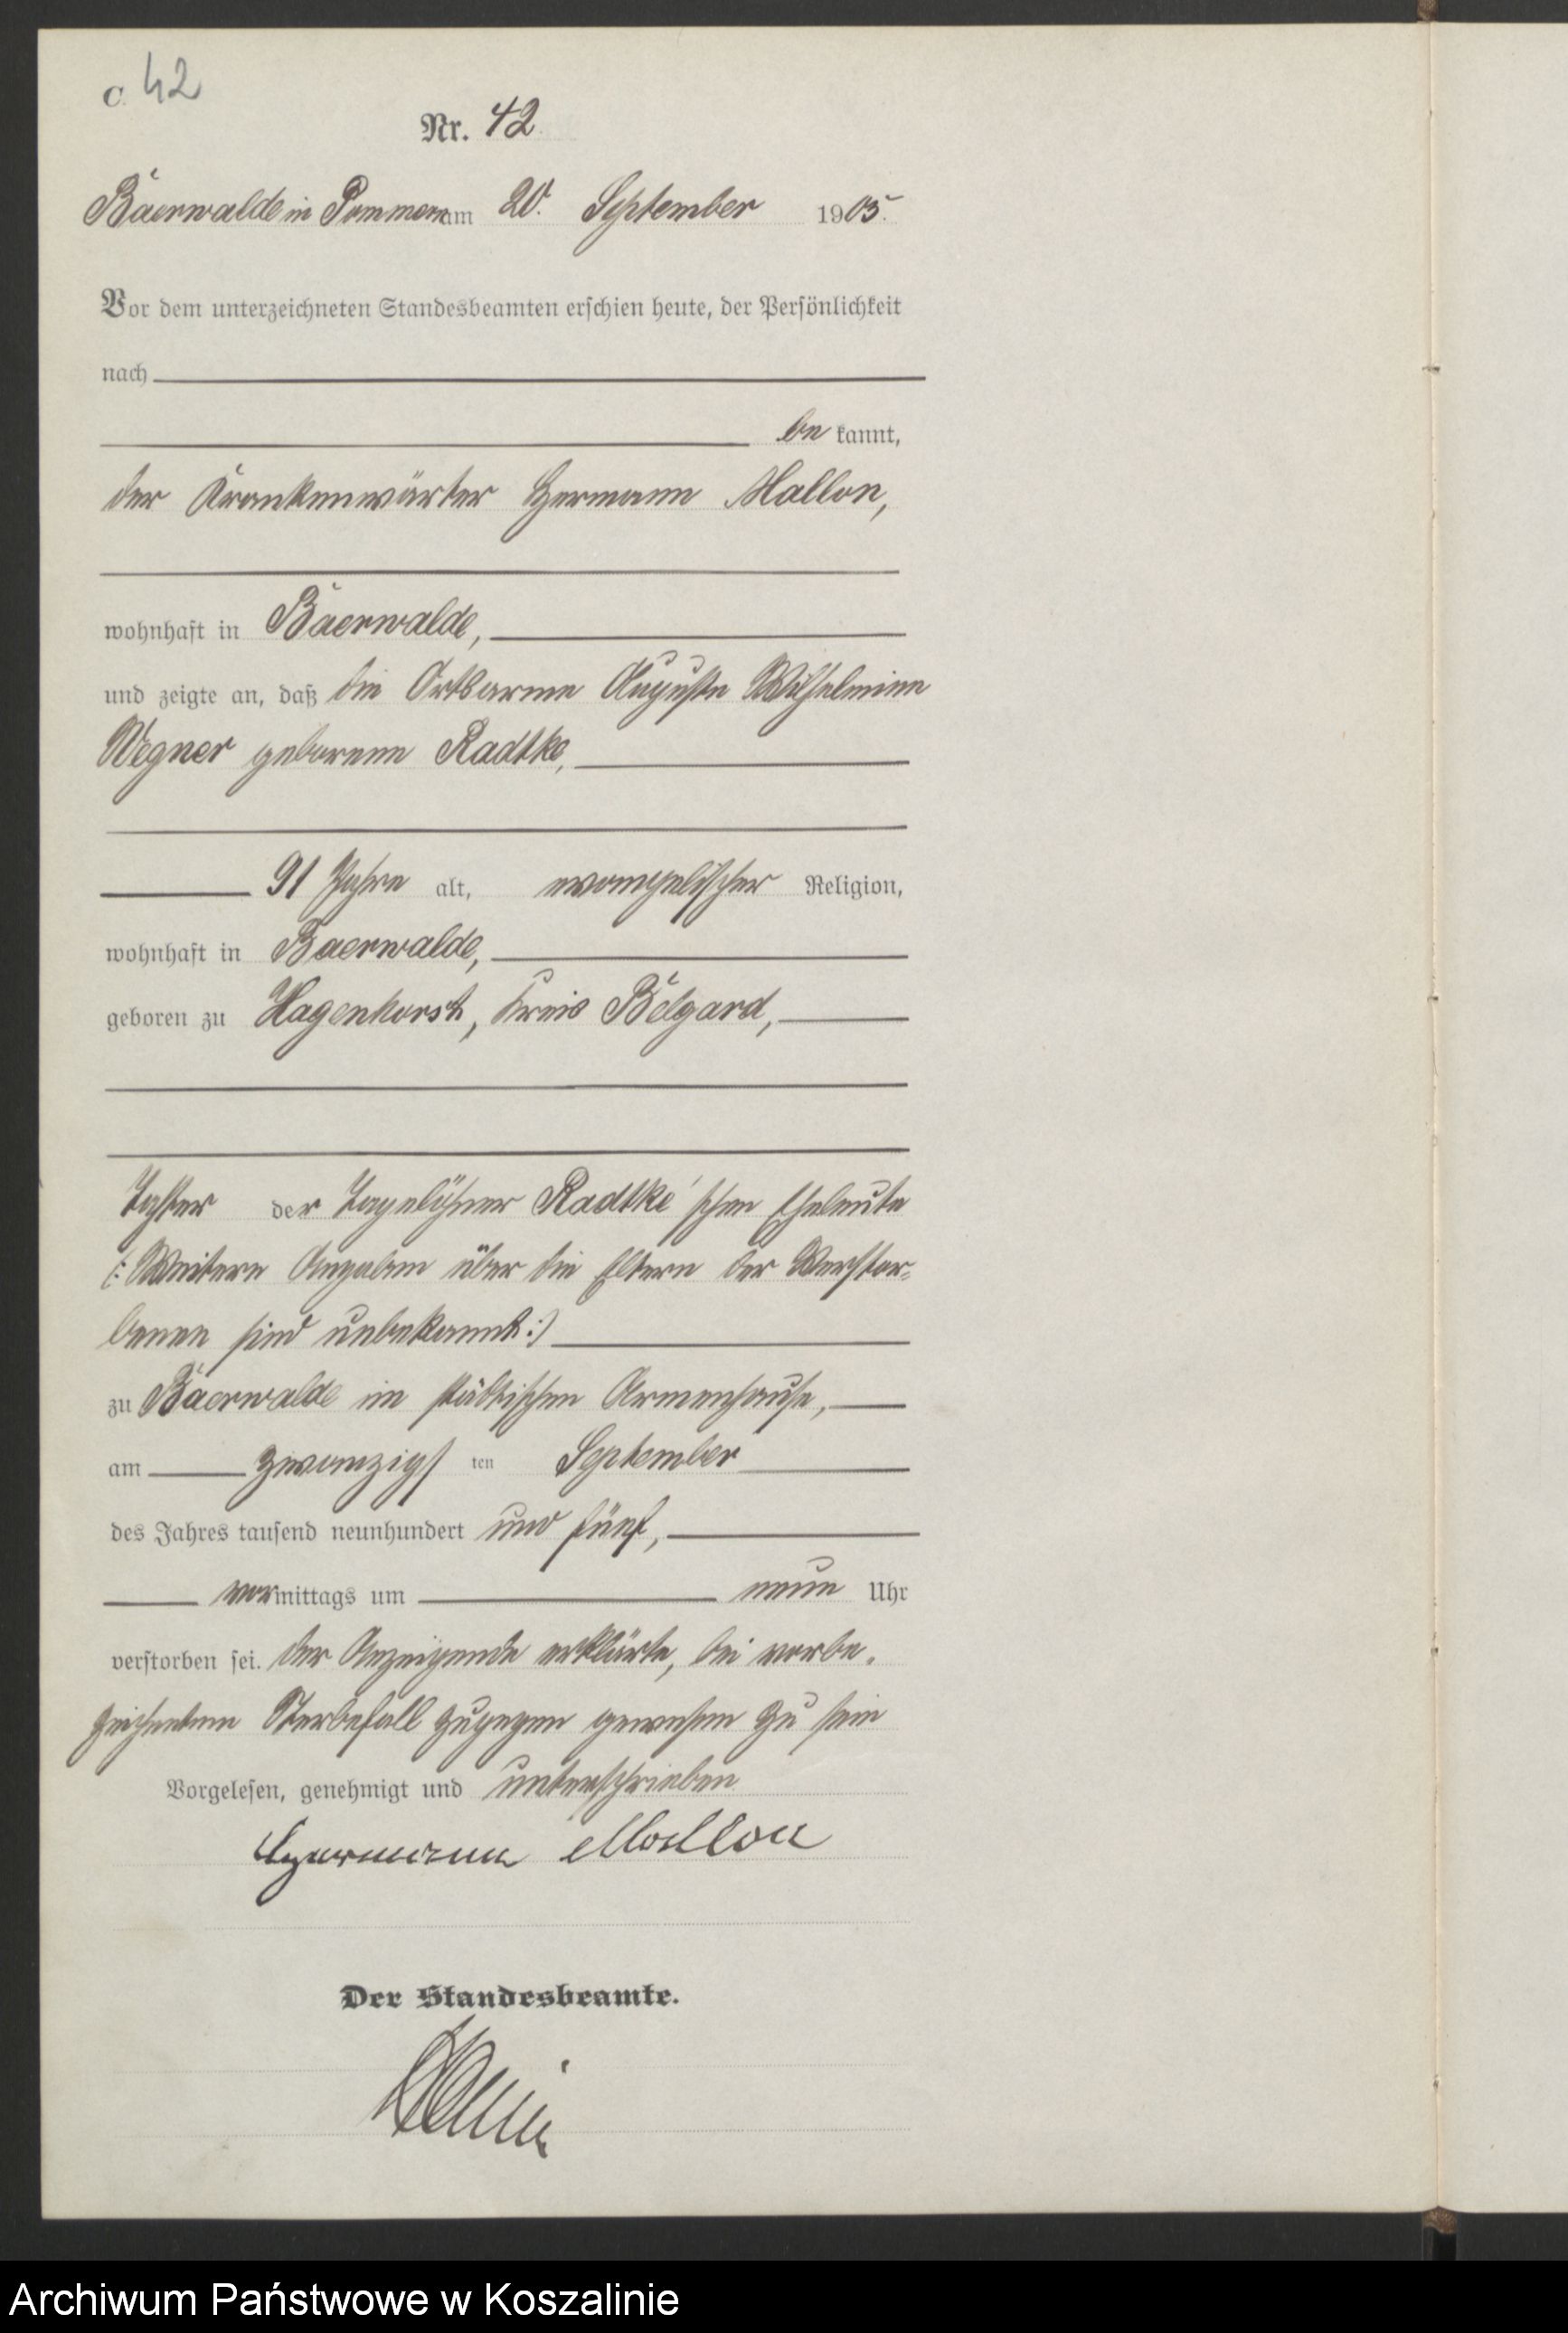 C. 42
Nr. 42
Baerwalde in Pommern am 20. September 1905.
Vor dem unterzeichneten Standesbeamten erschien heute, der Persönlichkeit
nach
be kannt,
der Krankenwärter Hermann Mallon,
wohnhaft in Baerwalde,
und zeigte an, daß die Ortsarme Auguste Wilhelmine
Wegner geborene Radtke,
91 Jahre alt, evangelischer Religion,
wohnhaft in Baerwalde,
geboren zu Hagenhorst, Kreis Belgard,
Tochter der Tagelöhner Radtke'schen Eheleute
(: Weitere Angaben über die Eltern der Verstor-
benen sind unbekannt :)
zu Baerwalde im städtischen Armenhause,
am zwanzigs ten September
des Jahres tausend neunhundert und fünf,
vor mittags um neun Uhr
verstorben sei. Der Anzeigende erklärte, bei vorbe-
zeichnetem Sterbefall zugegen gewesen zu sein
Vorgelesen, genehmigt und unterschrieben
Hermann Mallon
Der Standesbeamte.
Archiwum Państwowe w Koszalinie